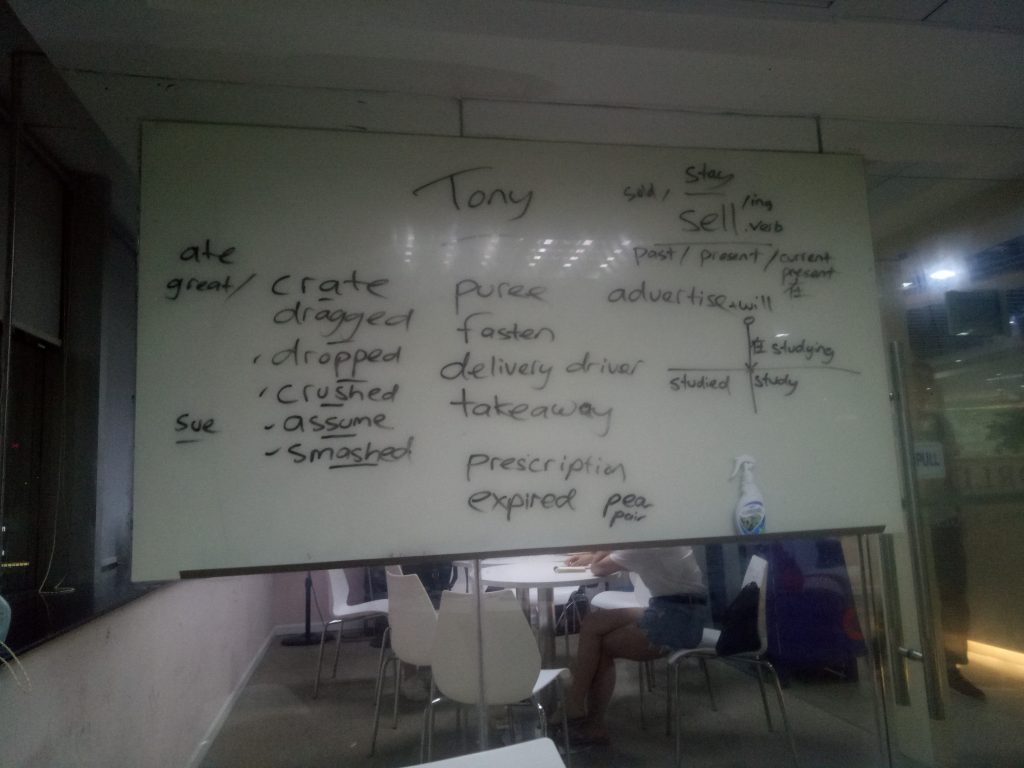 Tony
stay
sold / sell /ing
.verb
past / present / current
present
在
ate
great/ crate
dragged
dropped
crushed
sue - assume
- smashed
puree
fasten
delivery driver
takeaway
prescription
expired pea
pair
advertise will
在 studying
studied study
PULL